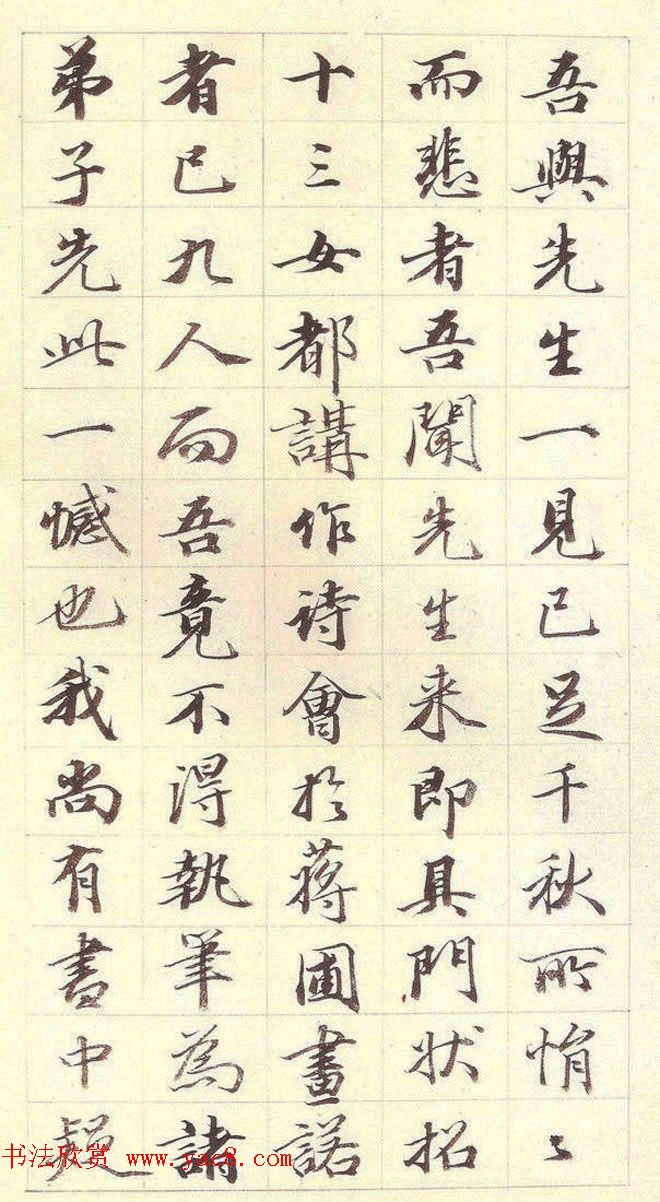 吾與先生一見已足千秋所悁〻
而悲者吾聞先生来即具門狀招
十三女都講作诗會於蒋圃畫諾
者已九人而吾竟不得執筆為諸
弟子先此一憾也我尚有書中疑
书法欣赏 www.yac8.com